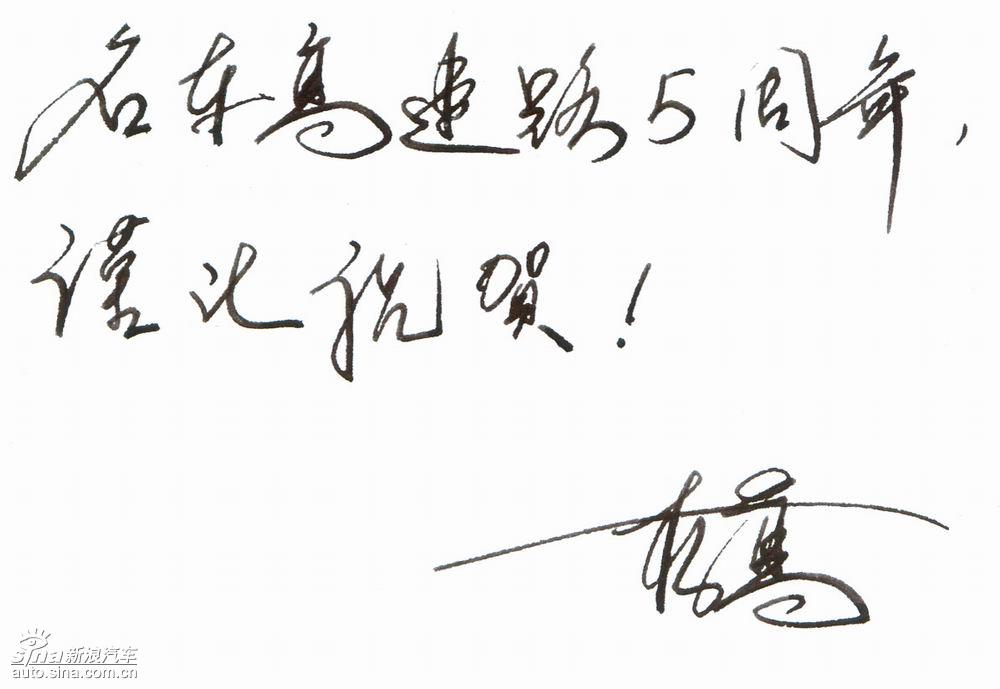 名车高速路5周年，
谨此祝賀！
sina新浪汽车
auto.sina.com.cn